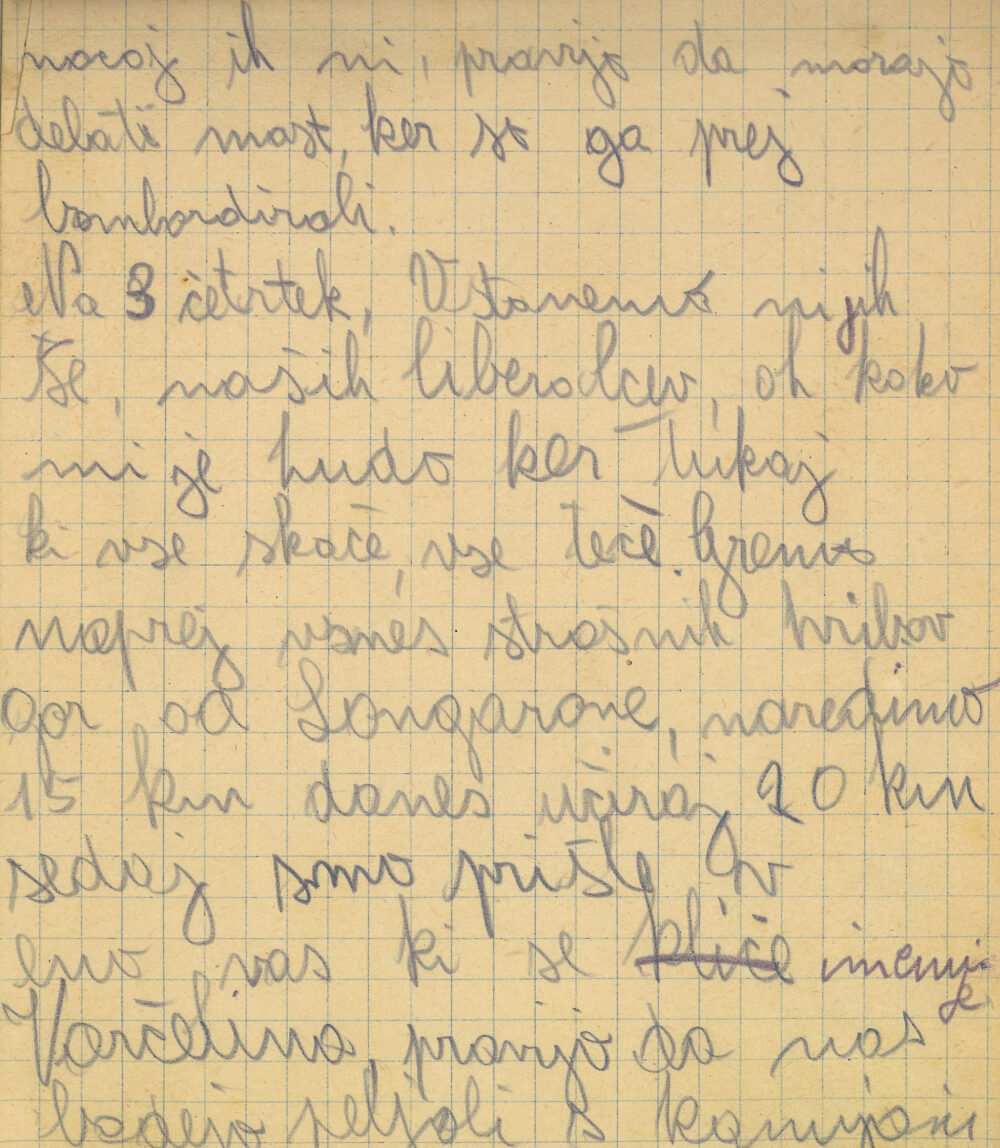 nocoj ih ni, pravijo da morajo
delati most, ker so ga prej
bombordirali.
Na 3 četrtek, Vstanemo ni jih
še, naših liberalcev, oh kako
mi je hudo ker tukaj
ki vse skače, vse teče. Gremo
naprej vsmes strašnih hribov
gor od Longarone, naredimo
15 km danes včiraj 20 km
sedaj smo prišle v
eno vas ki se kliče imenuje
Varčelino, pravijo da nas
bodejo peljali s kamijoni